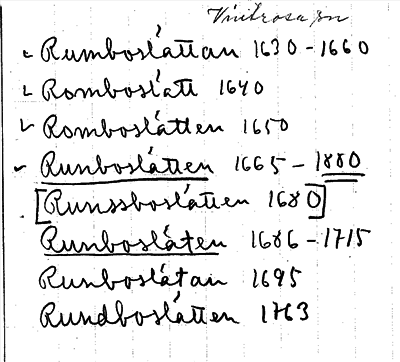 Rumboslåttan 1630-1660
Romboslått 1640
Rombostlåtten 1650
Runboslåtten 1665-1880
[Runssboslåtten 1680]
Runboslåten 1686-1715
Runboslåtan 1695
Rundboslåtten 1763